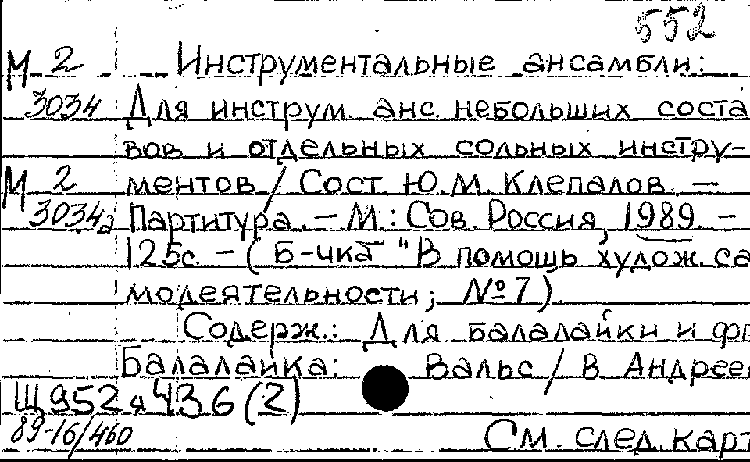 552
М 2 Инструментальные ансамбли:
3034 Для инструм. анс. небольших соста
вов и отдельных сольных инстру-
М 2 ментов / Сост. Ю.М. Клепалов. —
3034а Партитура. — М.: Сов. Россия, 1989. —
125с. — (Б-чка "В помощь худож. са
модеятельности; №7)
Содерж.: Для балалайки и фп
Балалайка: Вальс / В. Андрее
Щ952я436(2)
89-16/460
См. след. карт